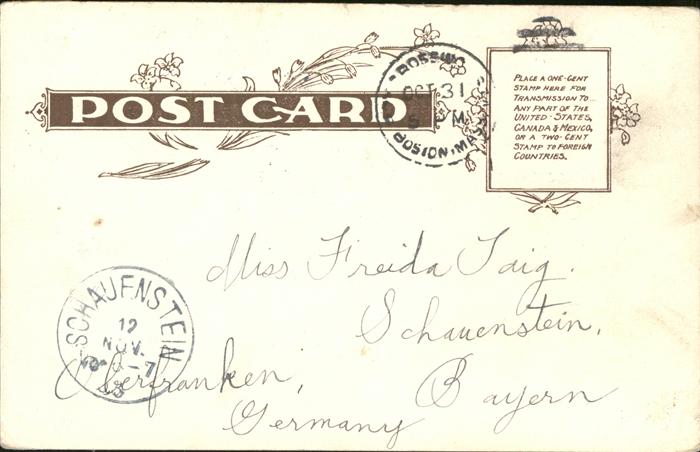 POST CARD
OCT 31
BOSTON, MASS
PLACE A ONE-CENT
STAMP HERE FOR
TRANSMISSION TO
ANY PART OF THE
UNITED STATES,
CANADA & MEXICO,
OR A TWO-CENT
STAMP TO FOREIGN
COUNTRIES.
Miss Freida Taig.
Schauenstein,
Oberfranken, Bayern
Germany
SCHAUENSTEIN
12
NOV.